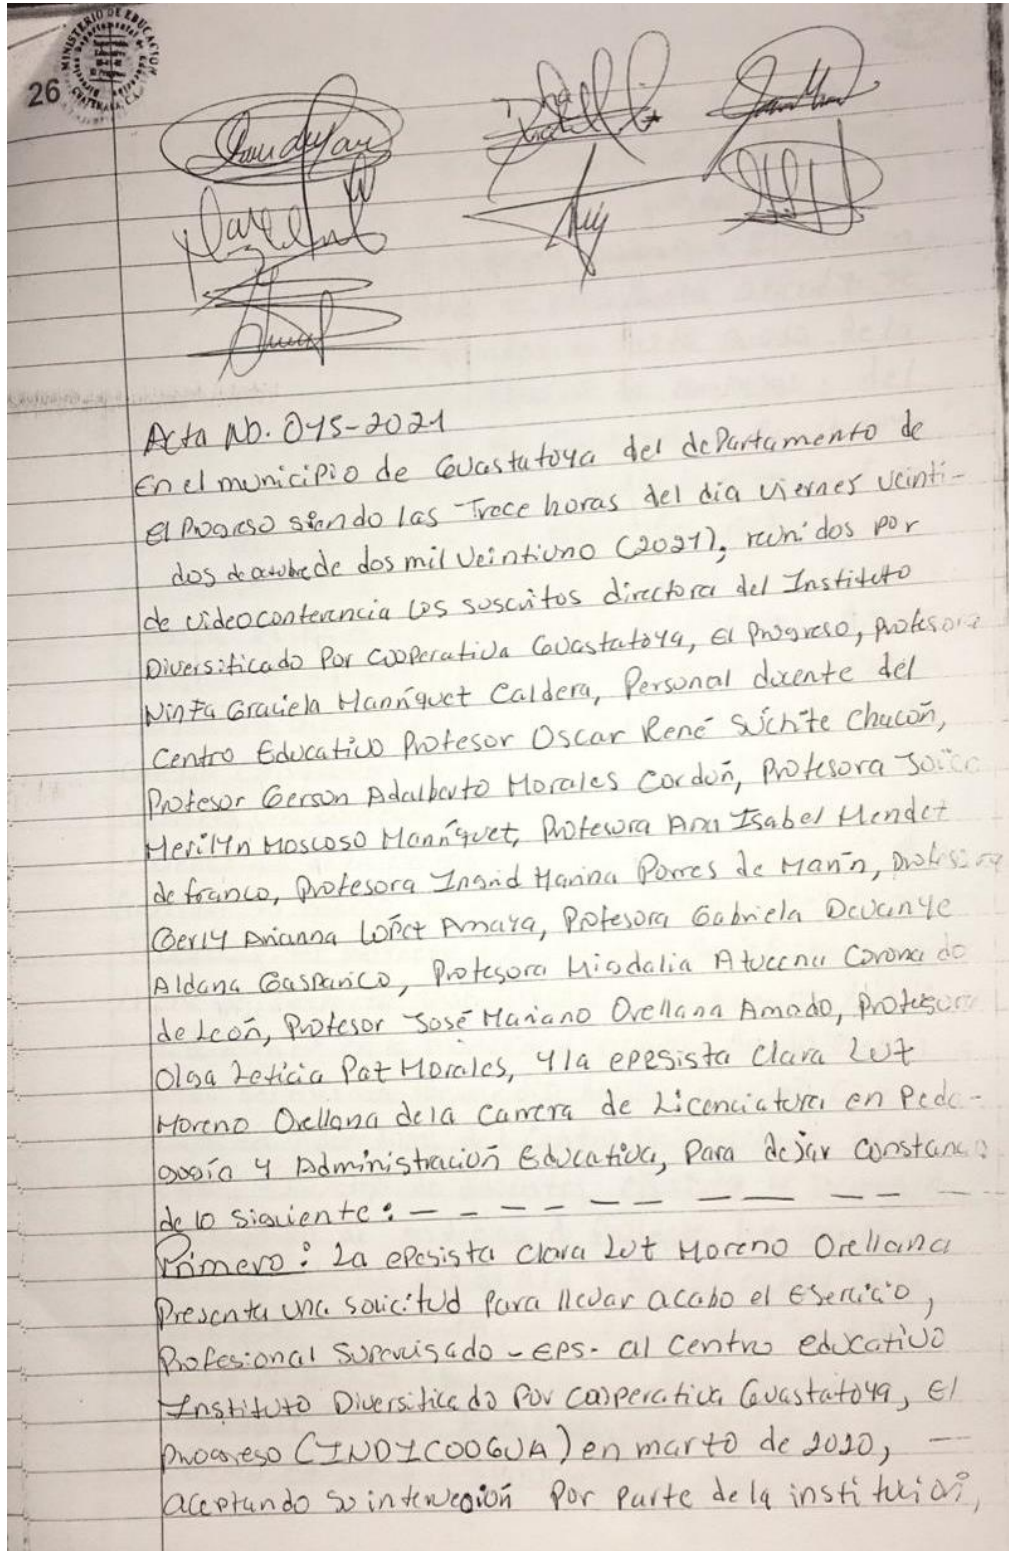 MINISTERIO DE EDUCACIÓN
GUATEMALA, C.A.
26
Acta No. 045-2021
En el municipio de Guastatoya del departamento de
el Progreso siendo las Trece horas del día viernes veinti-
dos de octubre de dos mil veintiuno (2021), reunidos por
de videoconferencia los suscritos directora del Instituto
Diversificado Por Cooperativa Guastatoya, El Progreso, profesora
Ninfa Graciela Manríquez Caldera, Personal docente del
Centro Educativo Profesor Oscar René Súchite Chacón,
Profesor Gerson Adalberto Morales Cordón, Profesora Joice
Merilyn Moscoso Manríquez, Profesora Ana Isabel Mendez
de franco, Profesora Ingrid Marina Porres de Marín, profesora
Gerly Arianna López Amaya, Pofesora Gabriela Devanye
Aldana Gasparico, Profesora Migdalia Azucena Coronado
de León, Profesor José Mariano Orellana Amado, profesora
Olga Leticia Paz Morales, y la epesista Clara Luz
Moreno Orellana de la Carrera de Licenciatura en Peda-
gogía y Administración Educativa, Para dejar constancia
de lo siguiente: - - - - - - - - -
Primero: La epesista Clara Luz Moreno Orellana
Presenta una solicitud para llevar acabo el Ejercicio,
Profesional Supervisado - EPS - al Centro educativo
Instituto Diversificado Por Cooperativa Guastatoya, El
Progreso (INDICOOGUA) en marzo de 2020, -
aceptando su intervención Por Parte de la institución,